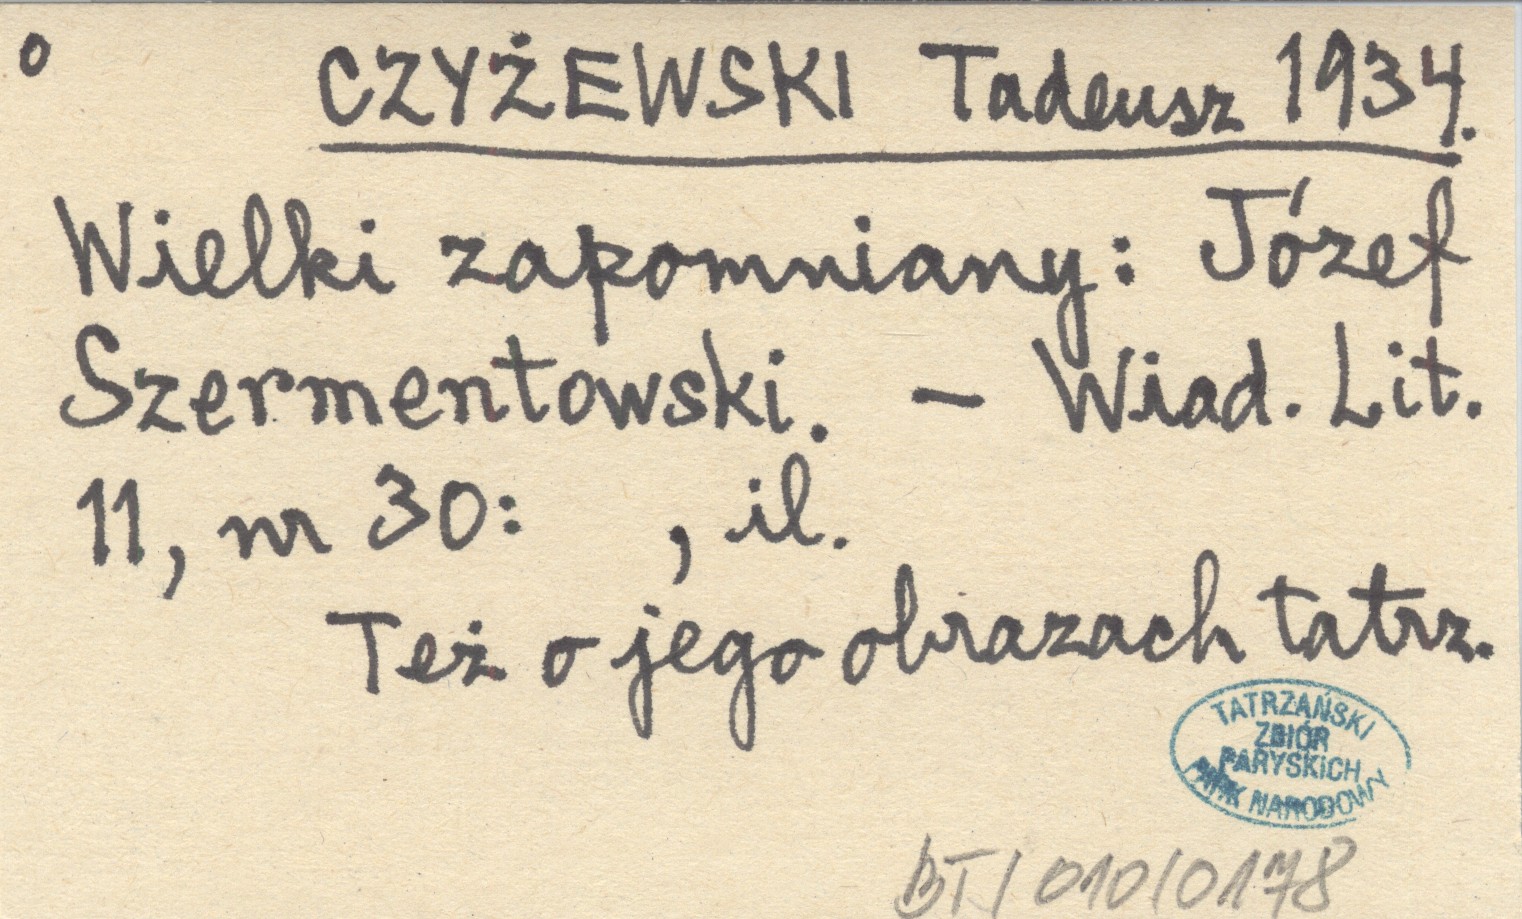 o CZYŻEWSKI Tadeusz 1934.
Wielki zapomniany: Józef
Szermentowski. – Wiad. Lit.
11, nr 30: , il.
Też o jego obrazach tatrz.
TATRZAŃSKI
ZBIÓR
PARYSKICH
PARK NARODOWY
BT/010/0178